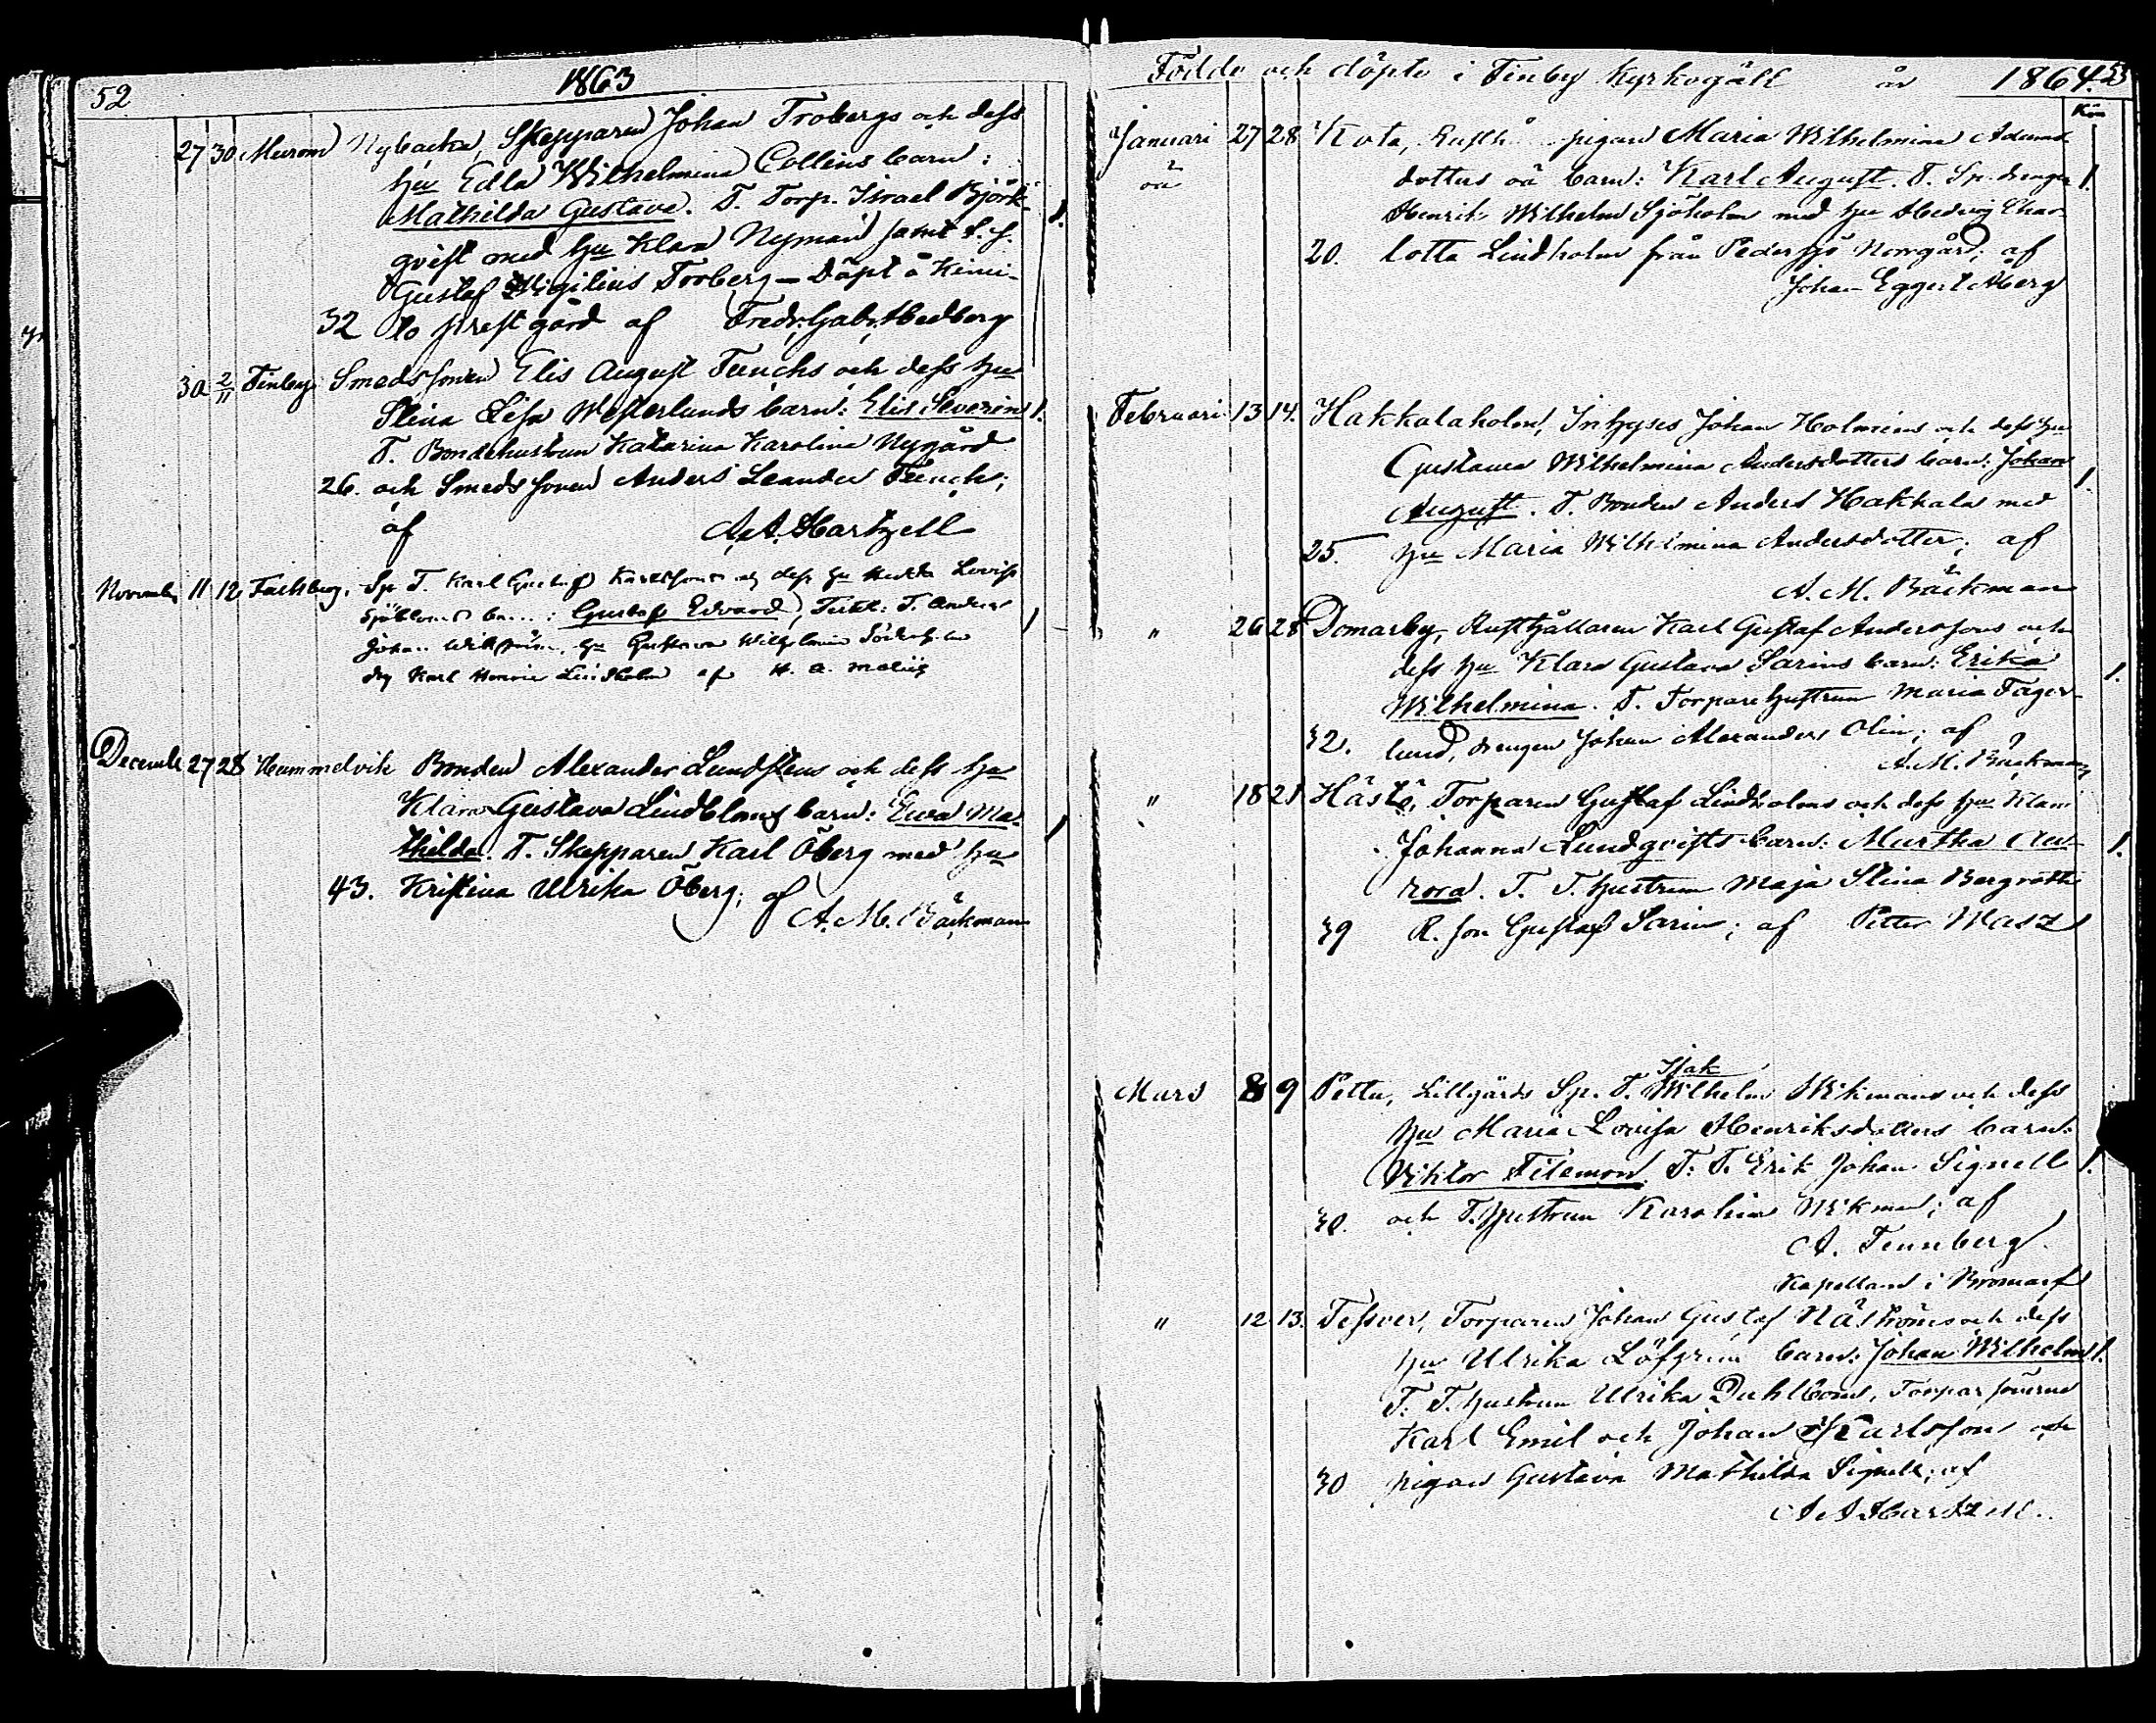 52
1863
27 30 Murom Nybacka, Skepparen Johan Trobergs och dess
hu Edla Wilhelmina Collins barn:
Mathilda Gustava. T. Torp. Israel Björk- 1.
qvist med hu Klara Nyman samt
Gustaf Vigilius Troberg – Döpt å Kimi-
32 to prestgård af Fredr. Gabr. Hedberg
30 2/11 Finby Smedssonen Elis August Funcks och dess hu
Stina Lisa Westerlunds barn: Elis Severin 1.
T. Bondehustrun Katarina Karolina Nygård
26. och Smedssonen Anders Leander Funck;
af A. A. Hartzell
November 11 12 Sp T. Karl Gustaf Karlssons och dess hu Lovisa
Gustaf Edvard, Test: T. Anders 1
Johan Wikström, hu Gustava Wilhelmina
drg Karl Henric Lindholm af H. A. Malin
December 27 28 Hummelvik Bonden Alexander Lundstens och dess hu
Klara Gustava Lindbloms barn: Ewa Ma- 1
thilda. T. Skepparen Karl Öberg med hu
43. Kristina Ulrika Öberg; af
A. M. Bäckman
Födde och döpte i Finby Kyrkogäll år 1864. 53
Kön
Januari 27 28 Kota, Rusth. pigan Maria Wilhelmina Adams
oä dotters oä barn: Karl August. T. Sp. drengen 1.
Henrik Wilhelm Sjöholm med hu Hedvig Char-
20. lotta Lindholm från Pedersjö Norrgård; af
Johan Eggert Åberg
Februari 13 14. Hakkalaholm, Inhyses Johan Holmens och dess hu
Gustava Wilhelmina Andersdotters barn: Johan 1
August. T. Bonden Anders Hakkala med
25. hu Maria Wilhelmina Andersdotter; af
A. M. Bäckman
" 26 28 Domarby, Rusthållaren Karl Gustaf Anderssons och
dess hu Klara Gustava Sarins barn: Erika 1.
Wilhelmina. T. Torparehustrun Maria Fager-
32. lund, drengen Johan Alexander Olin; af
A. M. Bäckman
" 18 21 Hästö, Torparen Gustaf Lindholms och dess hu Klara
Johanna Lundqvists barn: Martha Au- 1.
rora. T. T. hustrun Maja Stina Bergroth
39 R. son Gustaf Sarin; af Petter Masz
Isak
Mars 8 9 Pettu, Lillgårds Sp. T. Wilhelm Wikmans och dess
hu Maria Lovisa Henriksdotters barn:
Viktor Filemon. T: T. Erik Johan Signell 1.
30. och T. hustrun Karolina Wikman; af
A. Tennberg
Kapellan i Bromarf
" 12 13. Tessver, Torparen Johan Gustaf Nåströms och dess
hu Ulrika Löfgrens barn: Johan Wilhelm 1.
T. T. hustrun Ulrika Dahlbom, Torparsönerne
Karl Emil och Johan Karlsson och
30 pigan Gustava Mathilda Signell; af
A A Hartzell.